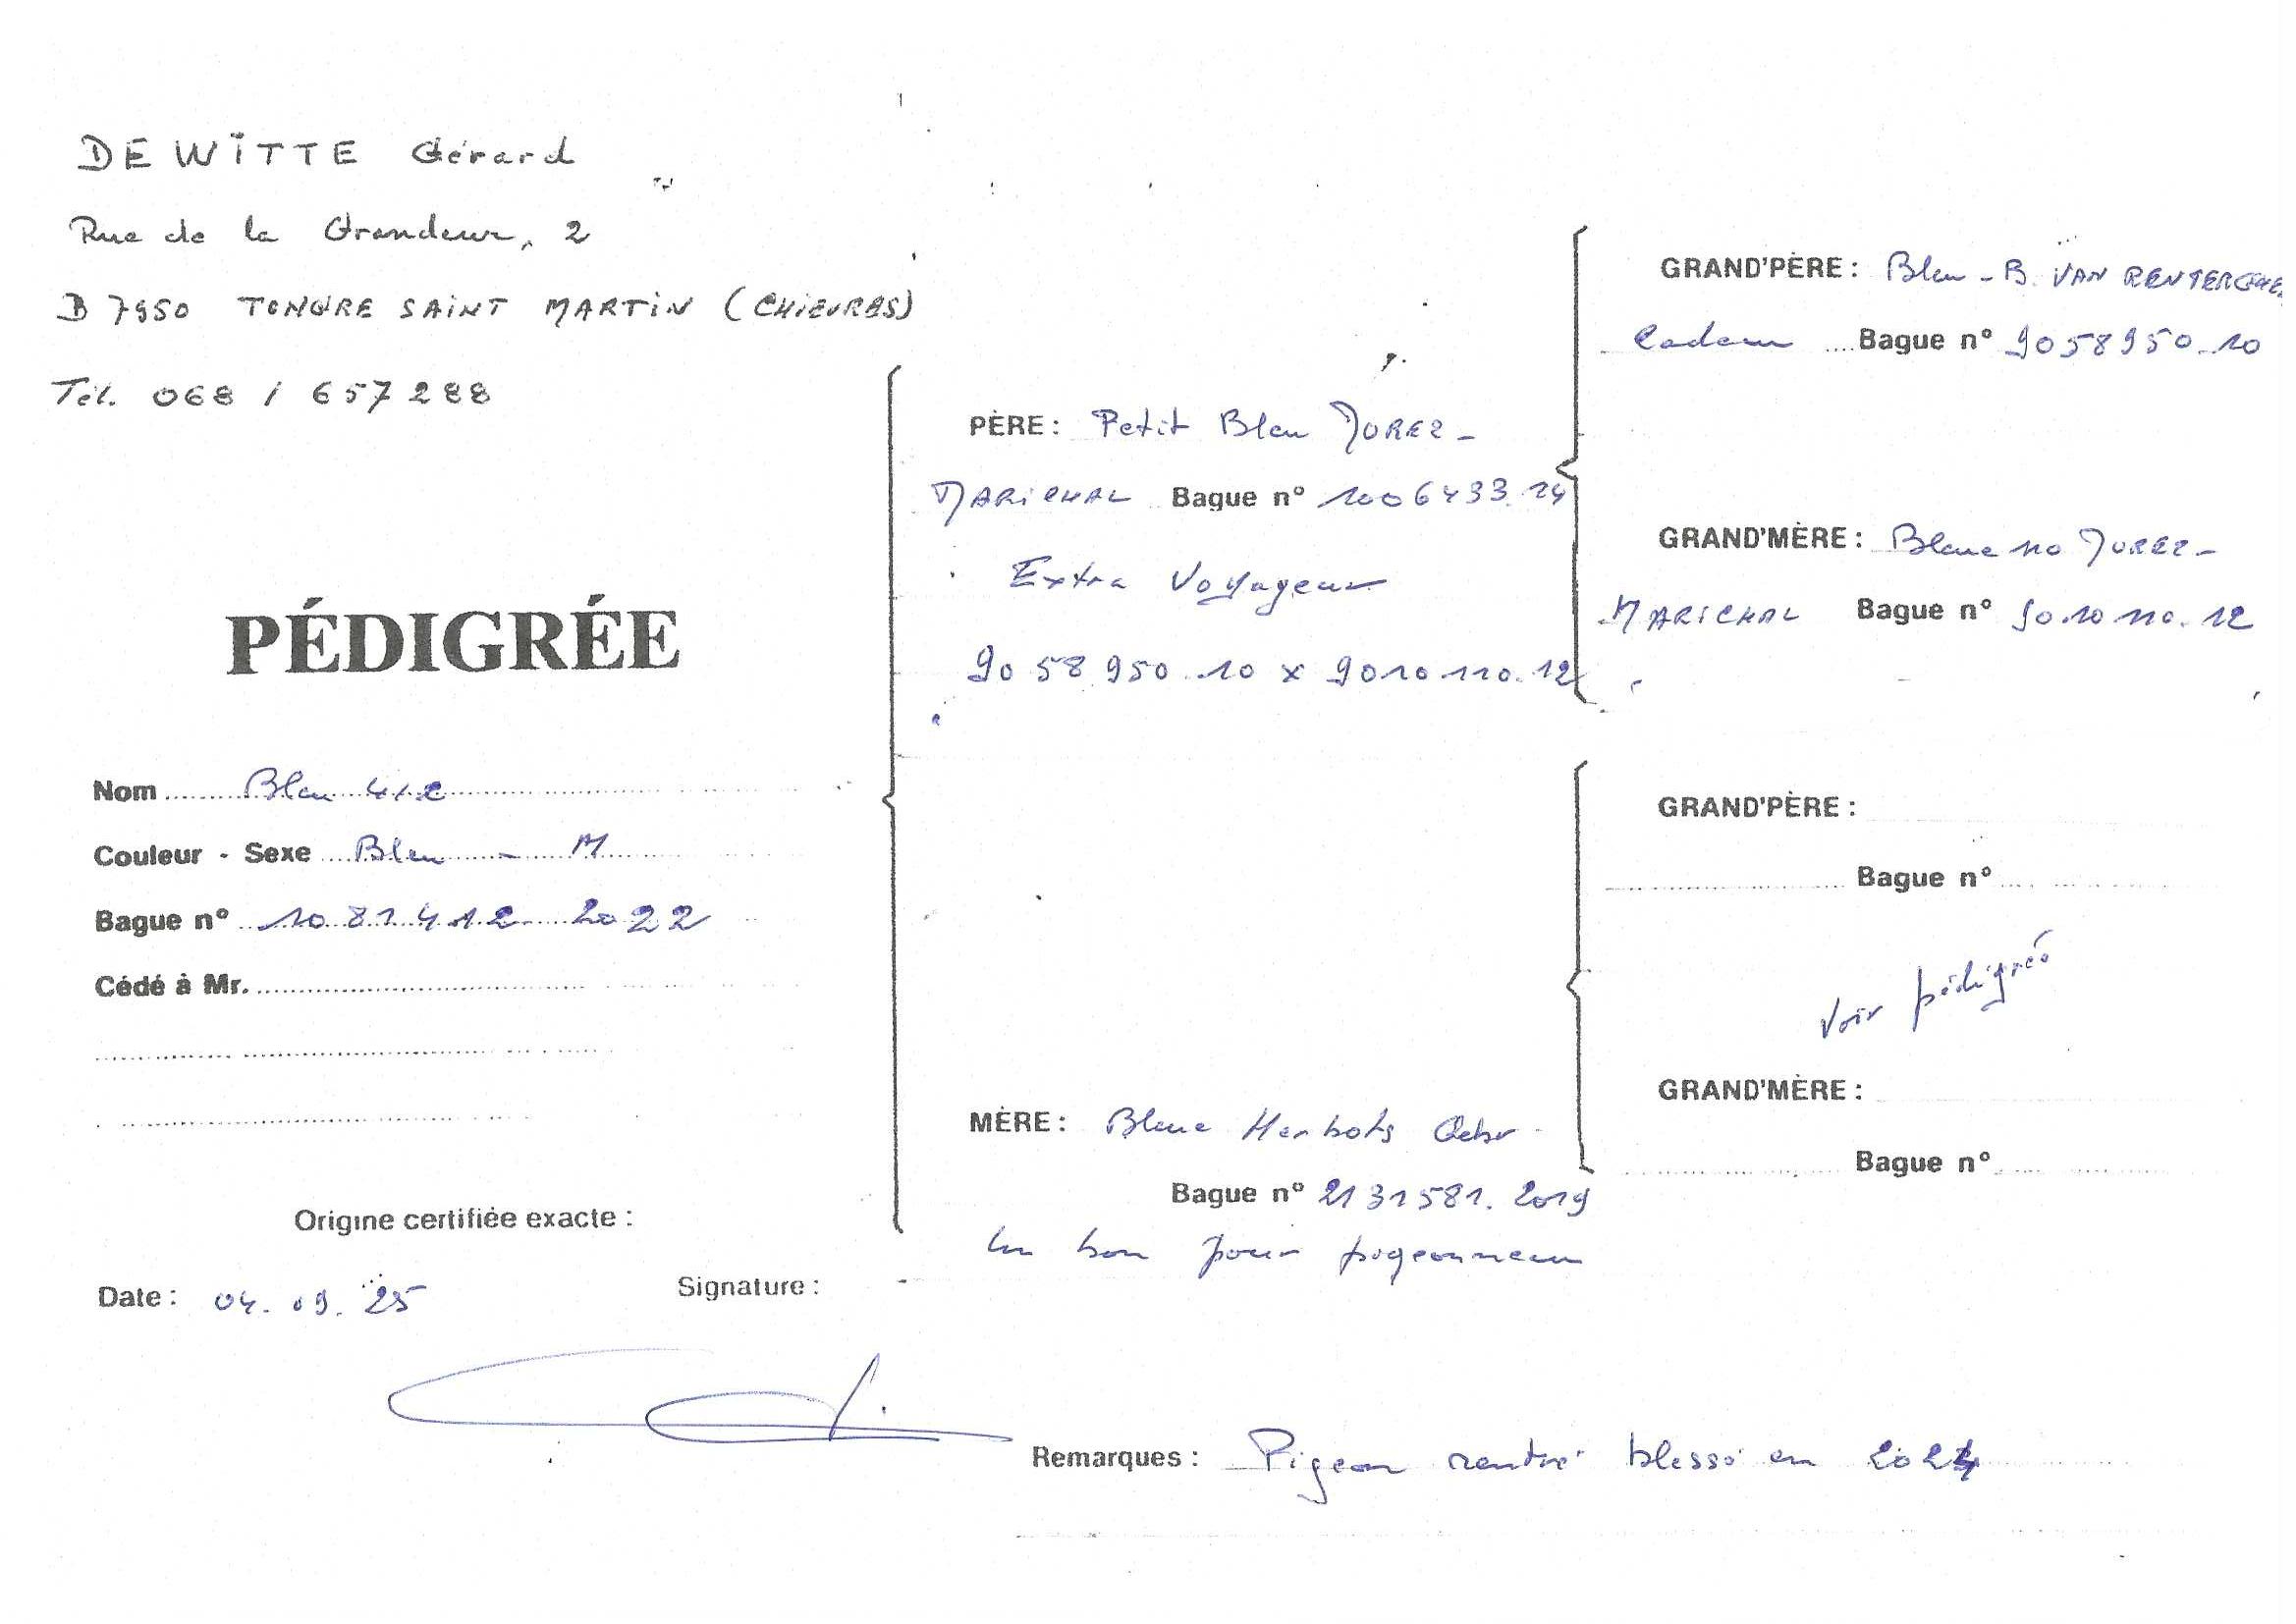 DEWITTE Gérard
Rue de la Grandeur, 2
B 7950 TONGRE SAINT MARTIN (CHIEVRES)
Tél. 068 / 657288
PÉDIGRÉE
Nom Bleu 412
Couleur - Sexe Bleu - M
Bague n° 1081412 2022
Cédé à Mr.
Origine certifiée exacte :
Date : 04.09.25
Signature :
PÈRE : Petit Bleu JOREZ -
MARICHAL Bague n° 1006433.14
Extra Voyageur
9058950.10 x 9010110.12
MÈRE : Bleue Herbots
Bague n° 2131581.2019
bon pour pigeonneau
GRAND'PÈRE : Bleu - B. VAN RENTERGHE
Cadeau Bague n° 9058950.10
GRAND'MÈRE : Bleue 110 JOREZ -
MARICHAL Bague n° 9010110.12
GRAND'PÈRE :
Bague n°
Voir pédigrée
GRAND'MÈRE :
Bague n°
Remarques : Pigeon rentré blessé en 2024